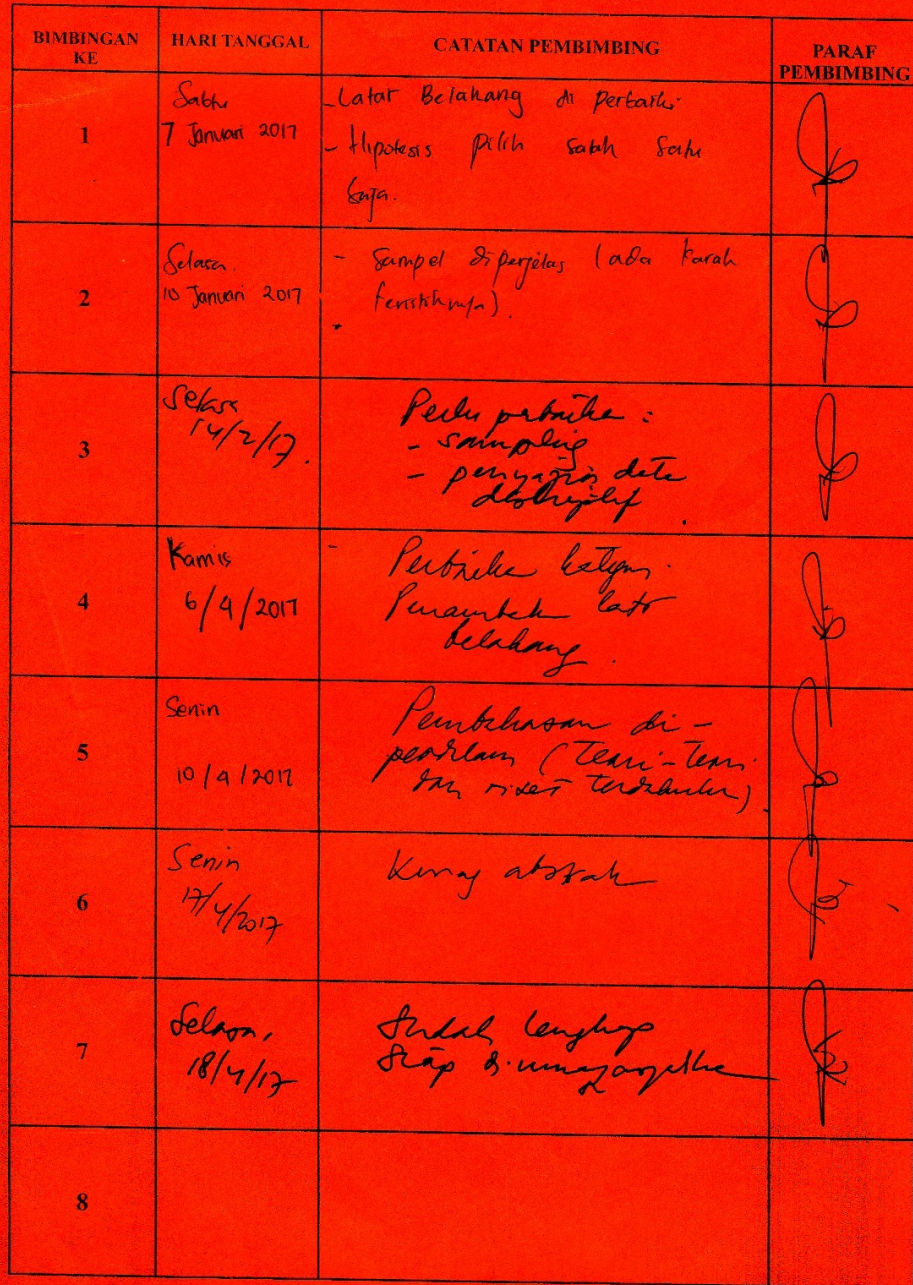 BIMBINGAN KE
HARI TANGGAL
CATATAN PEMBIMBING
PARAF PEMBIMBING
1
Sabtu
7 Januari 2017
- Latar Belakang di perbaiki
- Hipotesis pilih salah satu
saja.
2
Selasa.
10 Januari 2017
- Sampel diperjelas (ada karak
teristiknya).
3
Selasa
14/2/17.
Perlu perbaikan :
- sampling
- penyajian data
deskriptif
4
Kamis
6/4/2017
Perbaikan
latar
belakang.
5
Senin
10/4/2017
Pembahasan di-
perdalam (Teori-teori
dan riset terdahulu)
6
Senin
17/4/2017
Kurang abstrak
7
Selasa,
18/4/17
Sudah lengkap
Siap
8